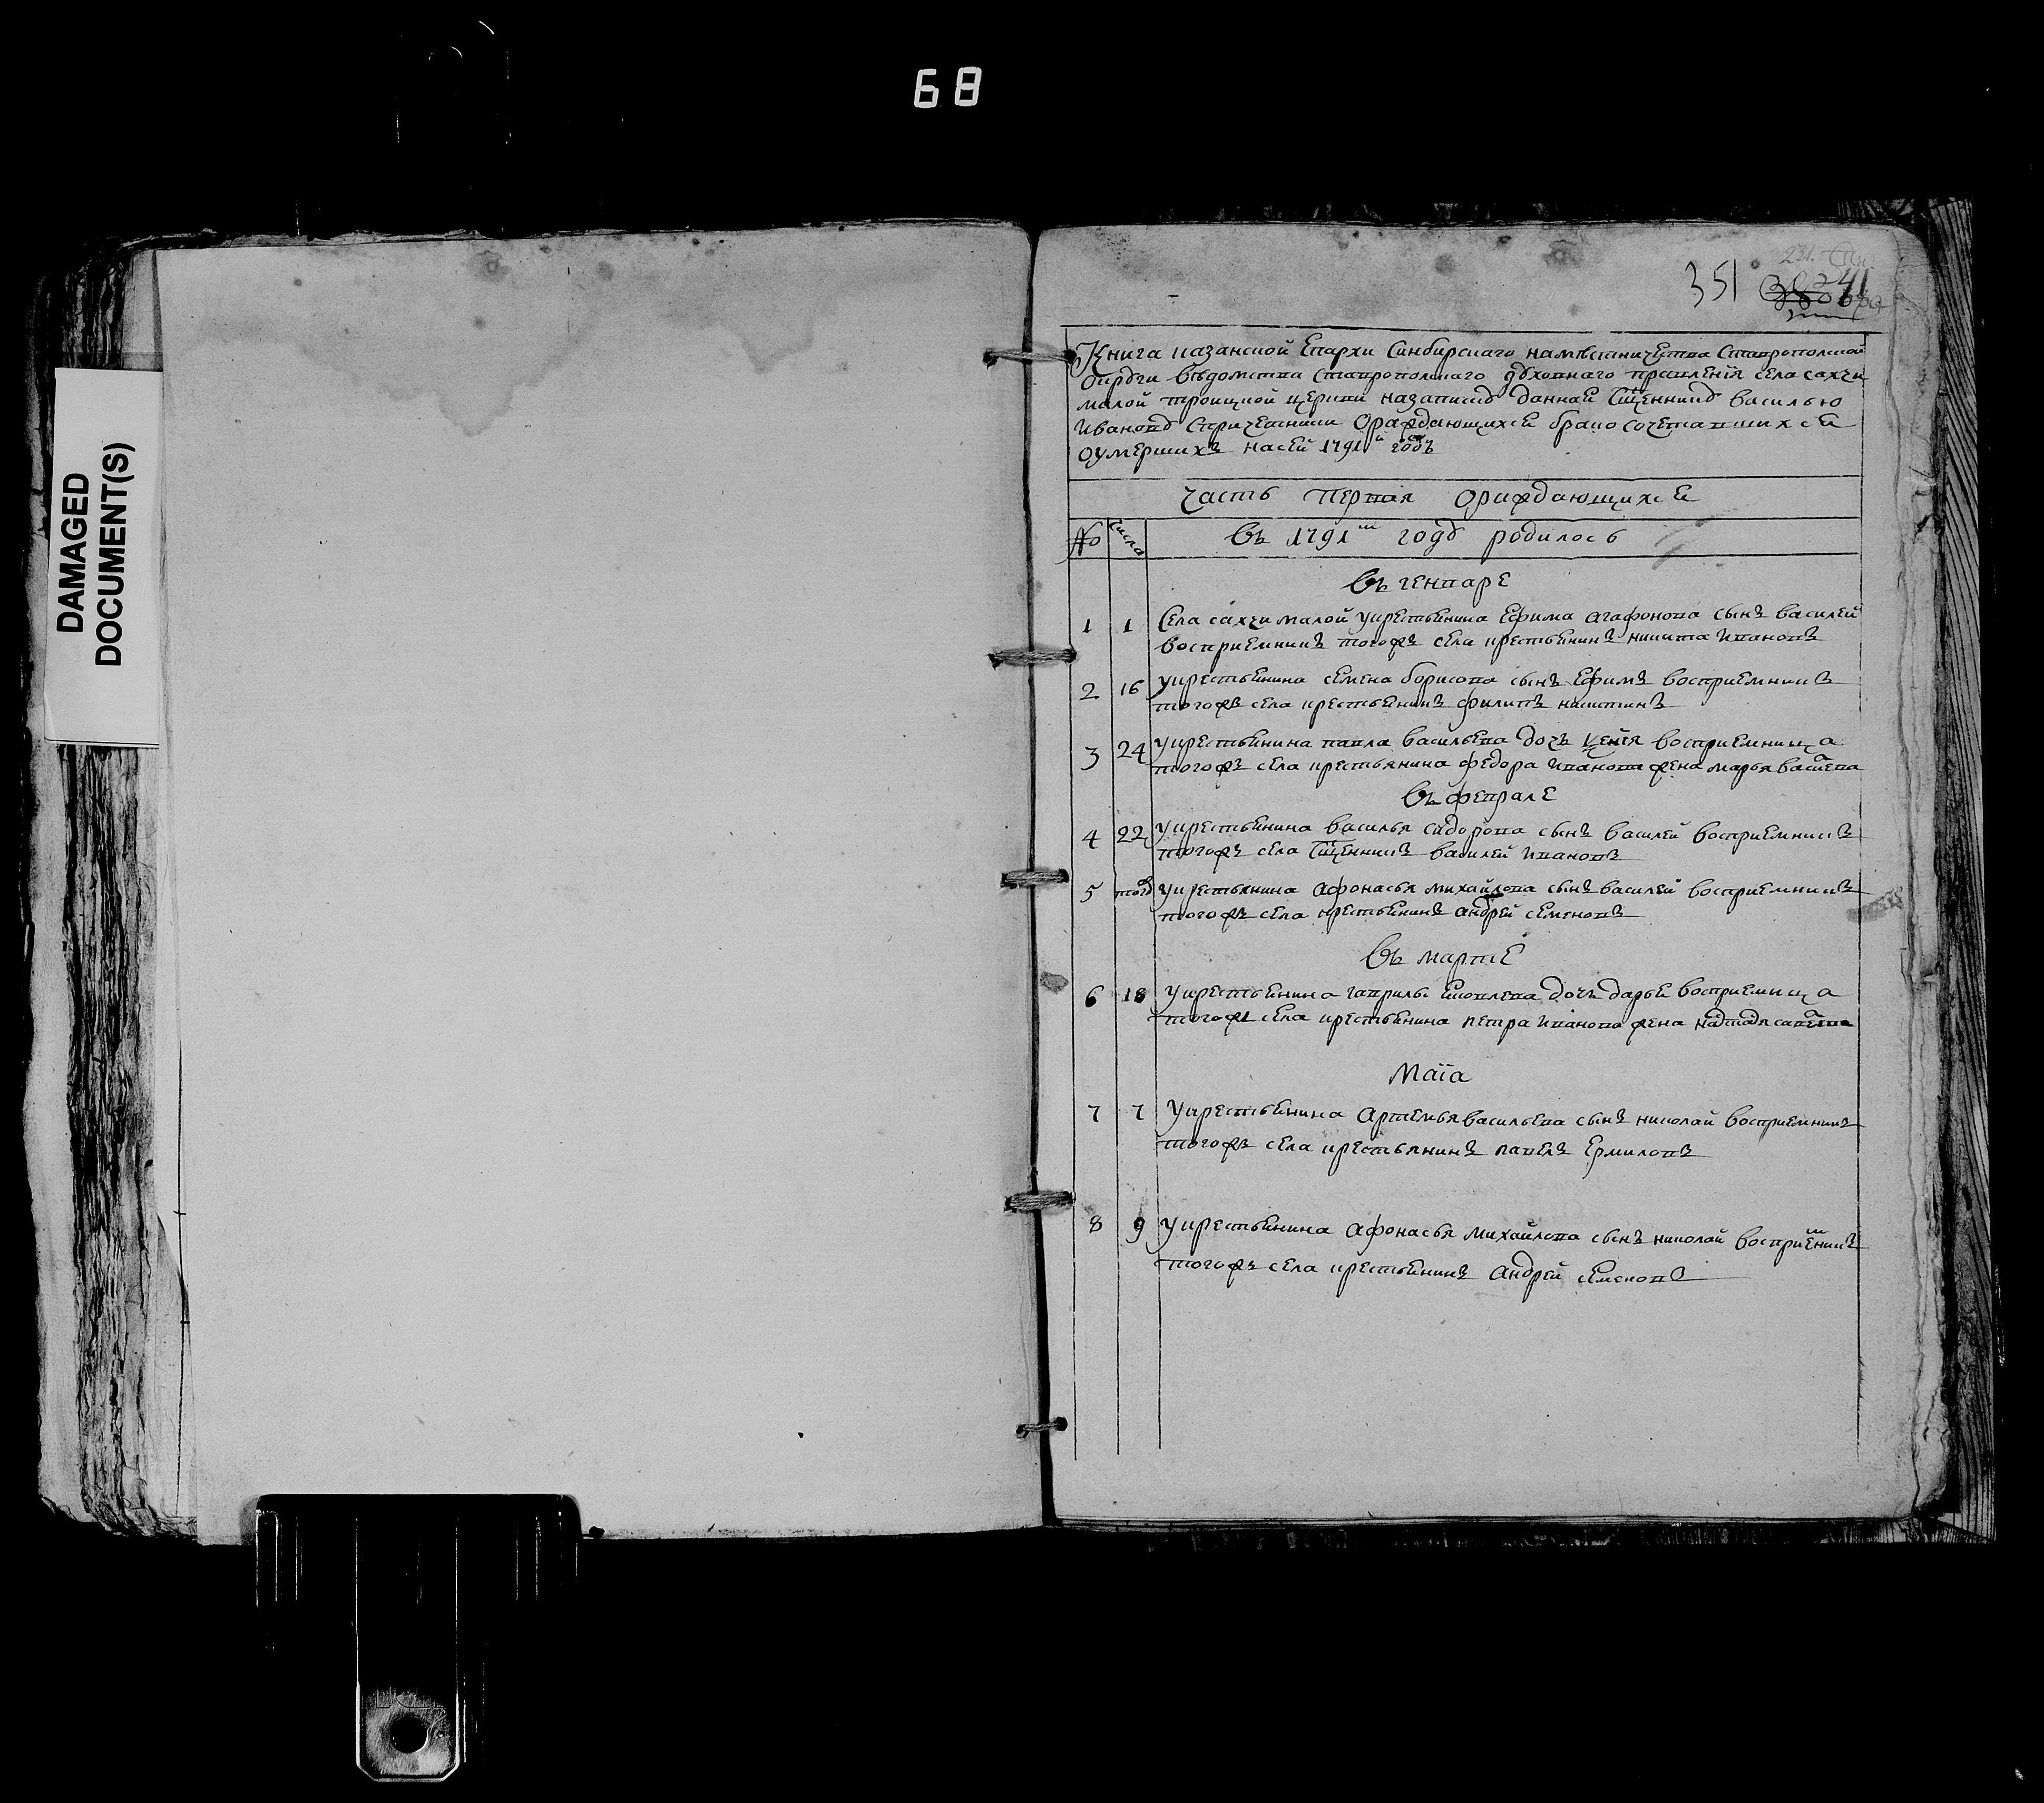 68
DAMAGED
DOCUMENT(S)
351
241
Книга казанской Епархи Синбирскаго намѣстничества Ставрополской
округи вѣдомства Ставрополскаго духовнаго правленїя села сахчи
малой троицкой церкви назаписку данная Сщеннику василью
Иванову Спричетники Ораждающихся бракосочетавшихся
оумершихъ насей 1791й годъ
часть первая ораждающихся
№ числа Въ 1791м году родилось
Въ генваре
1 1 Села сахчи малой укрестьянина Ефима агафонова сынъ василей
восприемникъ тогожъ села крестьянинъ никита Ивановъ
2 16 укрестьянина семена борисова сынъ Ефимъ восприемникъ
тогожъ села крестьянинъ филипъ никитинъ
3 24 укрестьянина павла васильева дочь восприемница
тогожъ села крестьянина федора Иванова жена марья
Въ феврале
4 22 укрестьянина василья сидорова сынъ василей восприемникъ
тогожъ села Сщенникъ василей Ивановъ
5 того укрестьянина Афонасья михайлова сынъ василей восприемникъ
тогожъ села крестьянинъ андрей семеновъ
Въ марте
6 18 укрестьянина гаврилы дочь дарья восприемница
тогожъ села крестьянина петра Иванова жена
Маїа
7 7 Укрестьянина Артемья васильева сынъ николай восприемникъ
тогожъ села крестьянинъ павелъ Ермиловъ
8 9 укрестьянина Афонасья михайлова сынъ николай восприемникъ
тогожъ села крестьянинъ андрей семеновъ